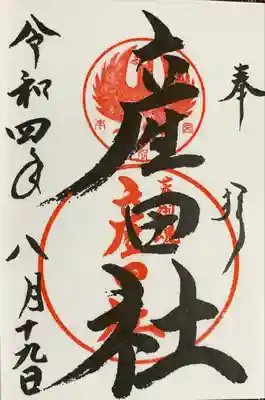 奉拝
産田社
令和四年
八月十九日